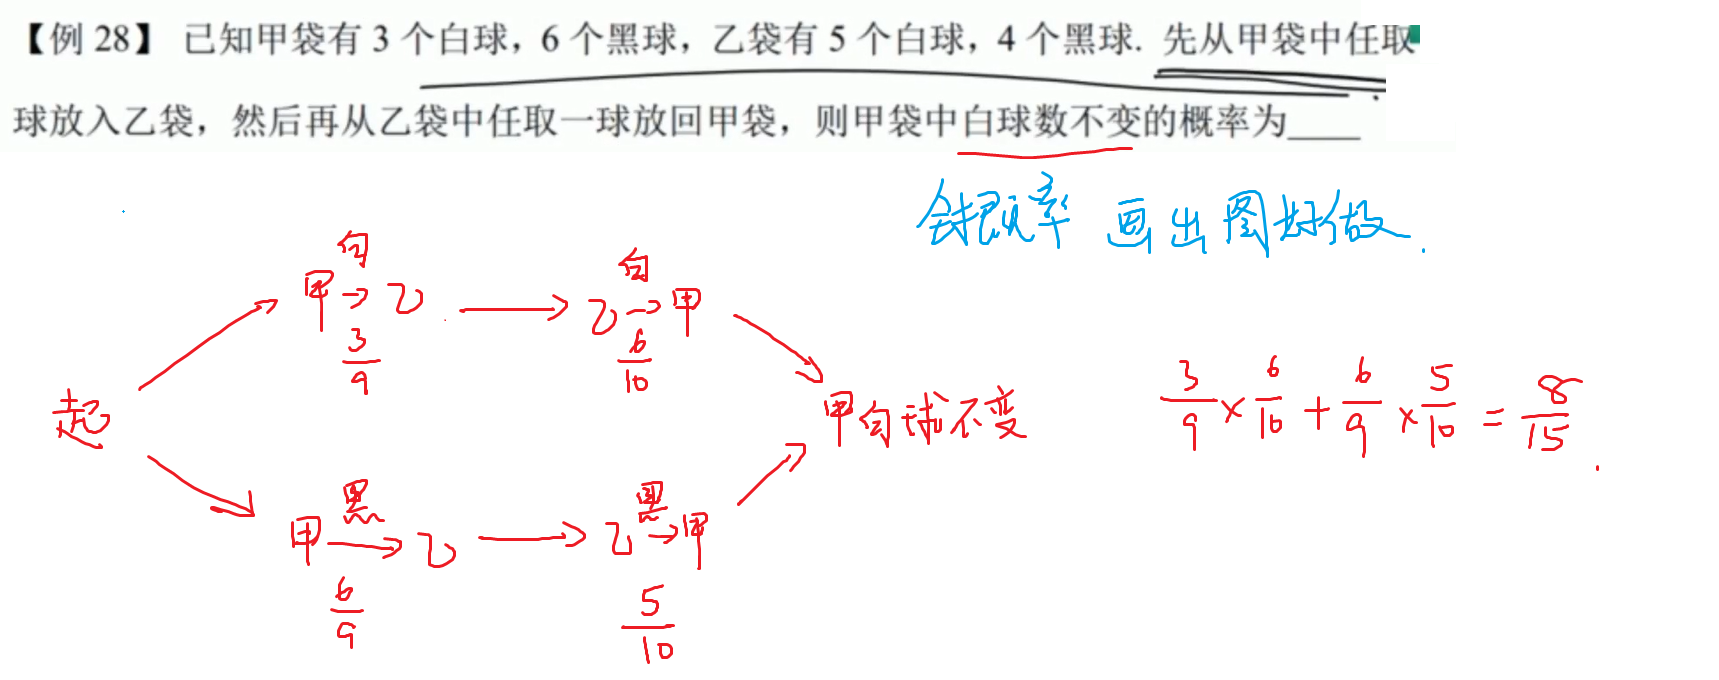 【例 28】 已知甲袋有 3 个白球，6 个黑球，乙袋有 5 个白球，4 个黑球. 先从甲袋中任取
球放入乙袋，然后再从乙袋中任取一球放回甲袋，则甲袋中白球数不变的概率为____
画出图好做.
白
甲→乙
3/9
白
乙→甲
6/10
起
甲白球不变
3/9 × 6/10 + 6/9 × 5/10 = 8/15.
黑
甲→乙
6/9
黑
乙→甲
5/10